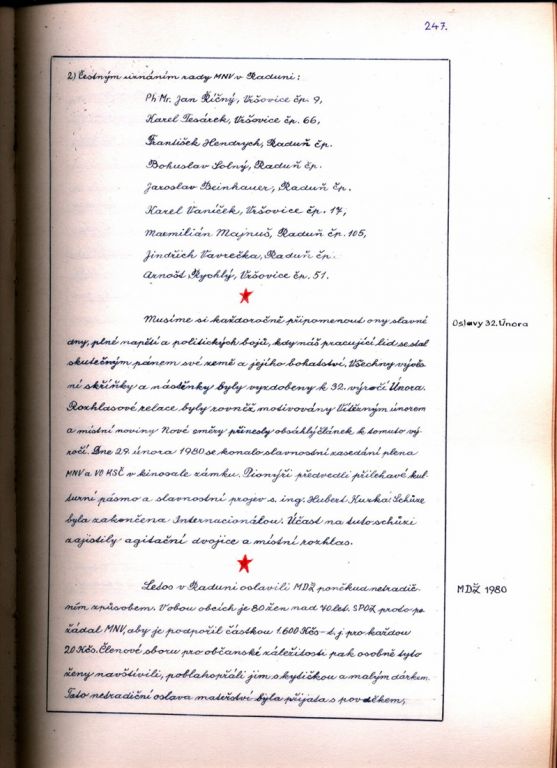 247.
2) Čestným uznáním rady MNV v Raduni:
Ph Mr. Jan Říčný, Vršovice čp. 9,
Karel Tesárek, Vršovice čp. 66,
František Hendrych, Raduň čp.
Bohuslav Solný, Raduň čp.
Jaroslav Beinhauer, Raduň čp.
Karel Vaníček, Vršovice čp. 17,
Maxmilián Majnuš, Raduň čp. 105,
Jindřich Vavrečka, Raduň čp.
Arnošt Rychlý, Vršovice čp. 51.
Musíme si každoročně připomenout ony slavné
Oslavy 32. Února
dny, plné napětí a politických bojů, kdy náš pracující lid se stal
skutečným pánem své země a jejího bohatství. Všechny vývěs
ní skříňky a nástěnky byly vyzdobeny k 32. výročí Února.
Rozhlasové relace byly rovněž motivovány Vítězným únorem
a místní noviny Nové směry přinesly obsáhlý článek k tomuto vý
ročí. Dne 29. února 1980 se konalo slavnostní zasedání plena
MNV a VO KSČ v kinosále zámku. Pionýři předvedli přiléhavé kul-
turní pásmo a slavnostní projev s. ing. Hubert Kurka. Schůze
byla zakončena Internacionálou. Účast na tuto schůzi
zajistily agitační dvojice a místní rozhlas.
Letos v Raduni oslavili MDŽ poněkud netradič-
MDŽ 1980
ním způsobem. V obou obcích je 80 žen nad 40 let. SPOZ proto po
žádal MNV, aby je podpořil částkou 1.600 Kčs - t. j. pro každou
20 Kčs. Členové sboru pro občanské záležitosti pak osobně tyto
ženy navštívili, poblahopřáli jim s kytičkou a malým dárkem.
Tato netradiční oslava mateřství byla přijata s povděkem,